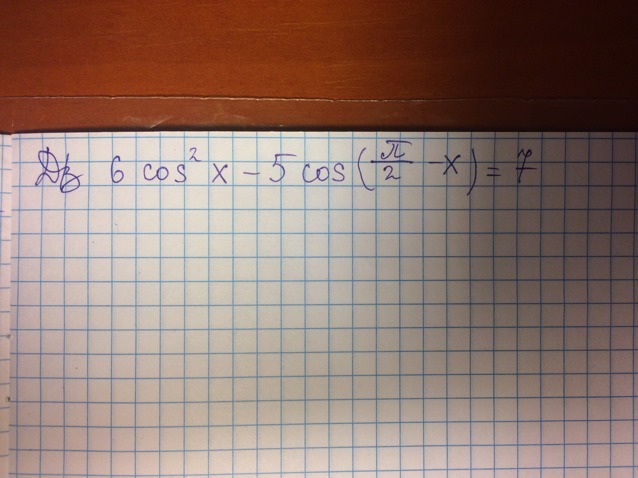 Дз 6 cos² x − 5 cos (π/2 − x) = 7